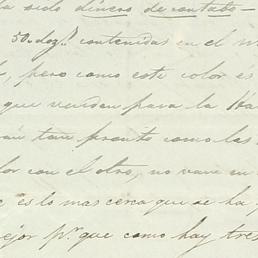 ha sido dinero de contado—
50 doz.s contenidas en el m
, pero como este color es
que vendan para la Ha
án tan pronto como las
lor con el otro, no vaya en
es lo mas cerca que se ha p
ejor p.r que como hay tres